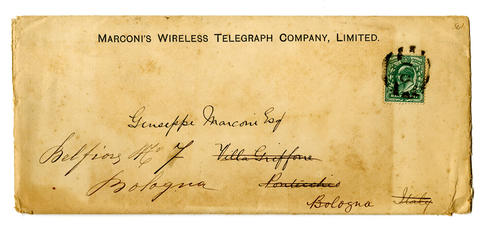 MARCONI'S WIRELESS TELEGRAPH COMPANY, LIMITED.
Giuseppe Marconi Esq
Belfiore No 7 Villa Griffone
Bologna Pontecchio
Bologna Italy